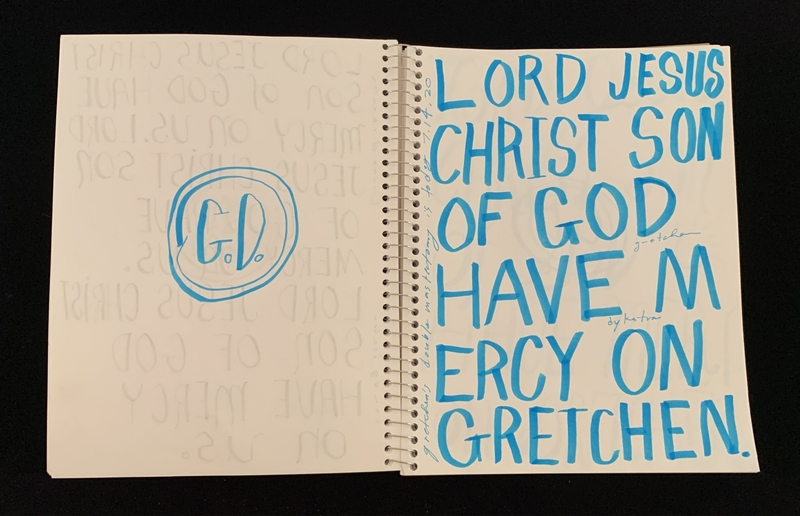 G.D.
gretchen's double mastectomy is today 7.14.20
LORD JESUS
CHRIST SON
OF GOD
gretchen
HAVE M
dykstra
ERCY ON
GRETCHEN.